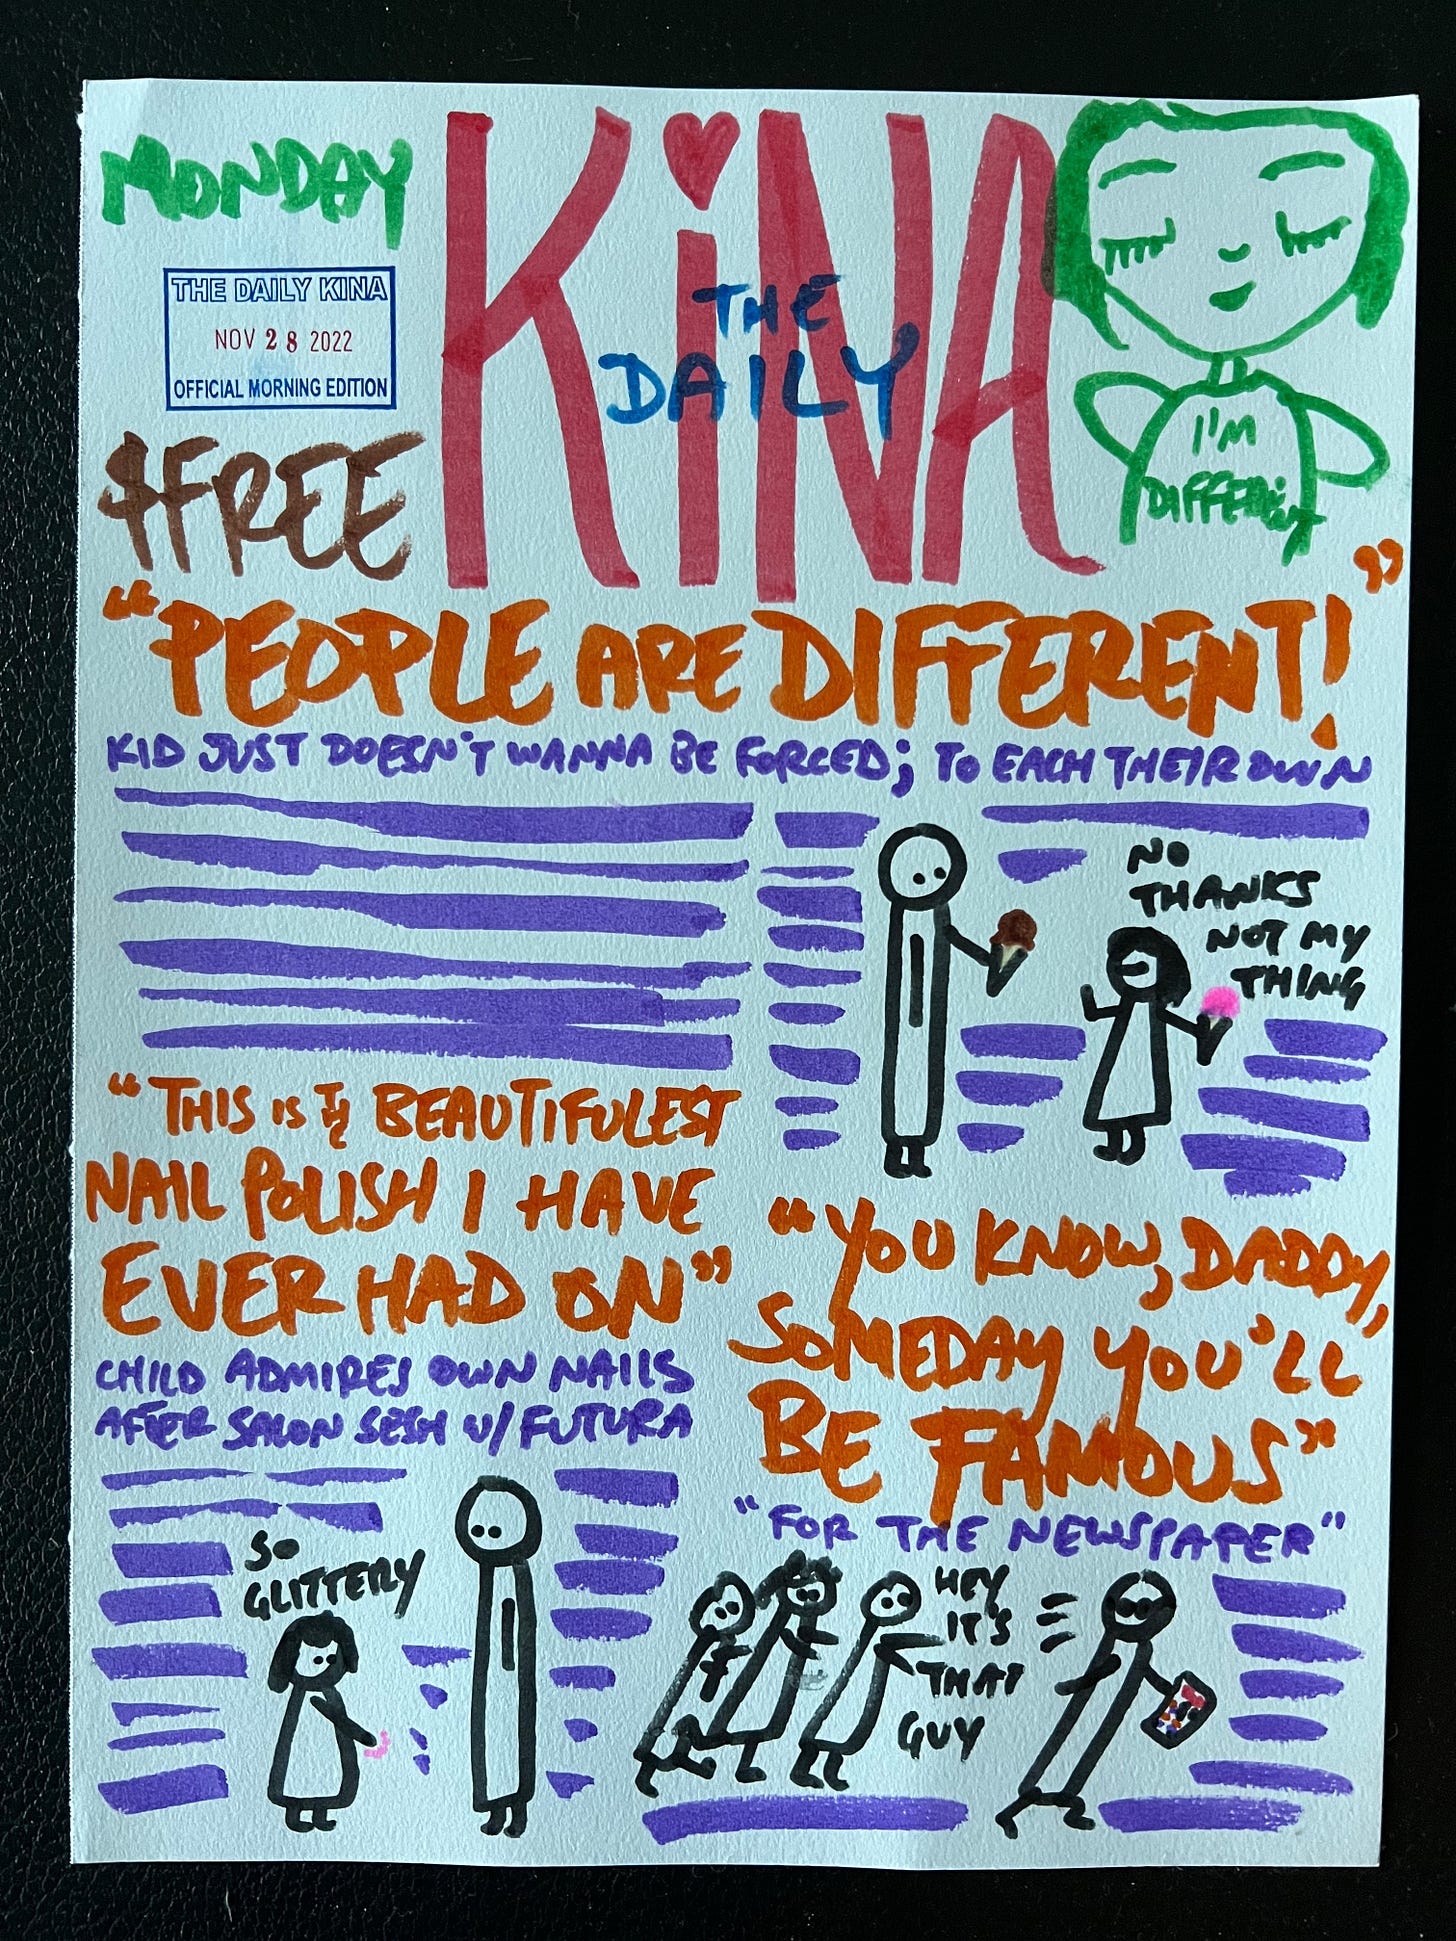 MONDAY
THE DAILY KINA
NOV 28 2022
OFFICIAL MORNING EDITION
$FREE
KiNA
THE
DAILY
I'M
DIFFERENT
"PEOPLE ARE DIFFERENT!"
KID JUST DOESN'T WANNA BE FORCED; TO EACH THEIR OWN
NO
THANKS
NOT MY
THING
"THIS IS THE BEAUTIFULEST
NAIL POLISH I HAVE
EVER HAD ON"
CHILD ADMIRES OWN NAILS
AFTER SALON SESH W/ FUTURA
SO
GLITTERY
"YOU KNOW, DADDY,
SOMEDAY YOU'LL
BE FAMOUS"
"FOR THE NEWSPAPER"
HEY
IT'S
THAT
GUY